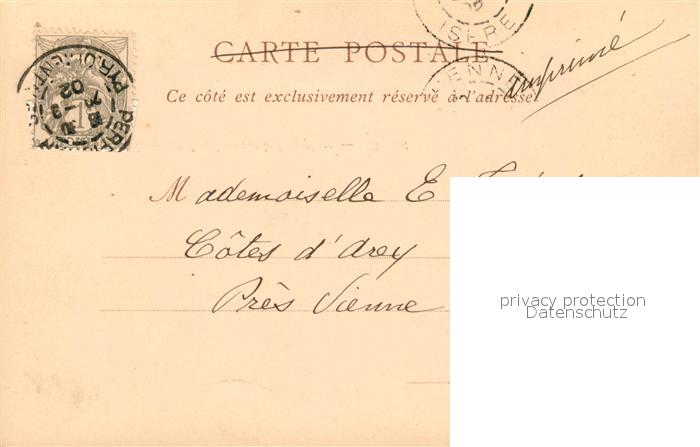 ISERE
CARTE POSTALE
VIENNE
imprimé
Ce côté est exclusivement réservé à l'adresse
PYR. ORIENTALES
02
1
Mademoiselle E
Côtes d'Arey
Près Vienne
privacy protection
Datenschutz